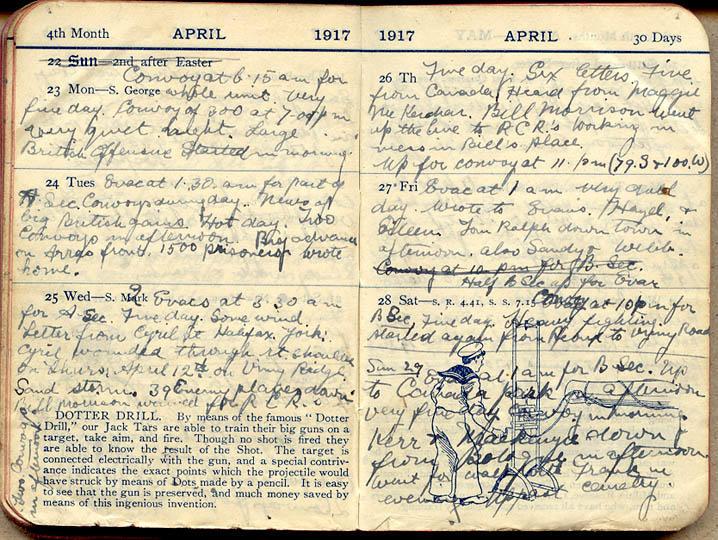 4th Month APRIL 1917
22 Sun—2nd after Easter
Convoy at 6.15 am for
23 Mon—S. George whole unit. Very
fine day. Convoy of 300 at 7.0 pm
very quiet night. Large
British offensive started in morning
24 Tues Evac at 1.30 am for part of
A Sec. Convoys during day. News of
big British gains. Hot day. Two
Convoys in afternoon. Big advance
on Arras front. 1500 prisoners. wrote
home.
25 Wed—S. Mark Evacs at 3.30 am
for A Sec. Fine day. Some wind.
Letter from Cyril at Halifax, York:
Cyril wounded through rt shoulder
on Thurs. April 12th on Vimy Ridge
Sand storms. 39 Enemy planes down.
Bill Morrison warned for R.C.R.'s
Two Convoys
in afternoon
DOTTER DRILL. By means of the famous "Dotter
Drill," our Jack Tars are able to train their big guns on a
target, take aim, and fire. Though no shot is fired they
are able to know the result of the Shot. The target is
connected electrically with the gun, and a special contriv-
ance indicates the exact points which the projectile would
have struck by means of Dots made by a pencil. It is easy
to see that the gun is preserved, and much money saved by
means of this ingenious invention.
1917 APRIL 30 Days
26 Th Fine day. Six letters. Five
from Canada. Heard from Maggie
Bill Morrison went
up the line to R.C.R.s Working in
mess in Bill's place.
Up for convoy at 11. pm (79.S & 100.W)
27 Fri Evac at 1 am Very dull
day. Wrote to Evans, Hazel, &
Eileen. Tom Ralph down town in
afternoon. also Sandy & Welch.
Convoy at 10 pm for B Sec.
Half B Sec up for Evac
28 Sat—S. R. 4.41, S. S. 7.15 Convoy at 10 pm for
B Sec. Fine day. Heavy fighting.
Started again from to Vimy Road
Sun 29 at 1 am for B Sec. Up
to Canada park in afternoon
very fine day. Convoy in morning
Kerr & Mackenzie down
from in afternoon
went for walk with Frank in
evening past cemetery